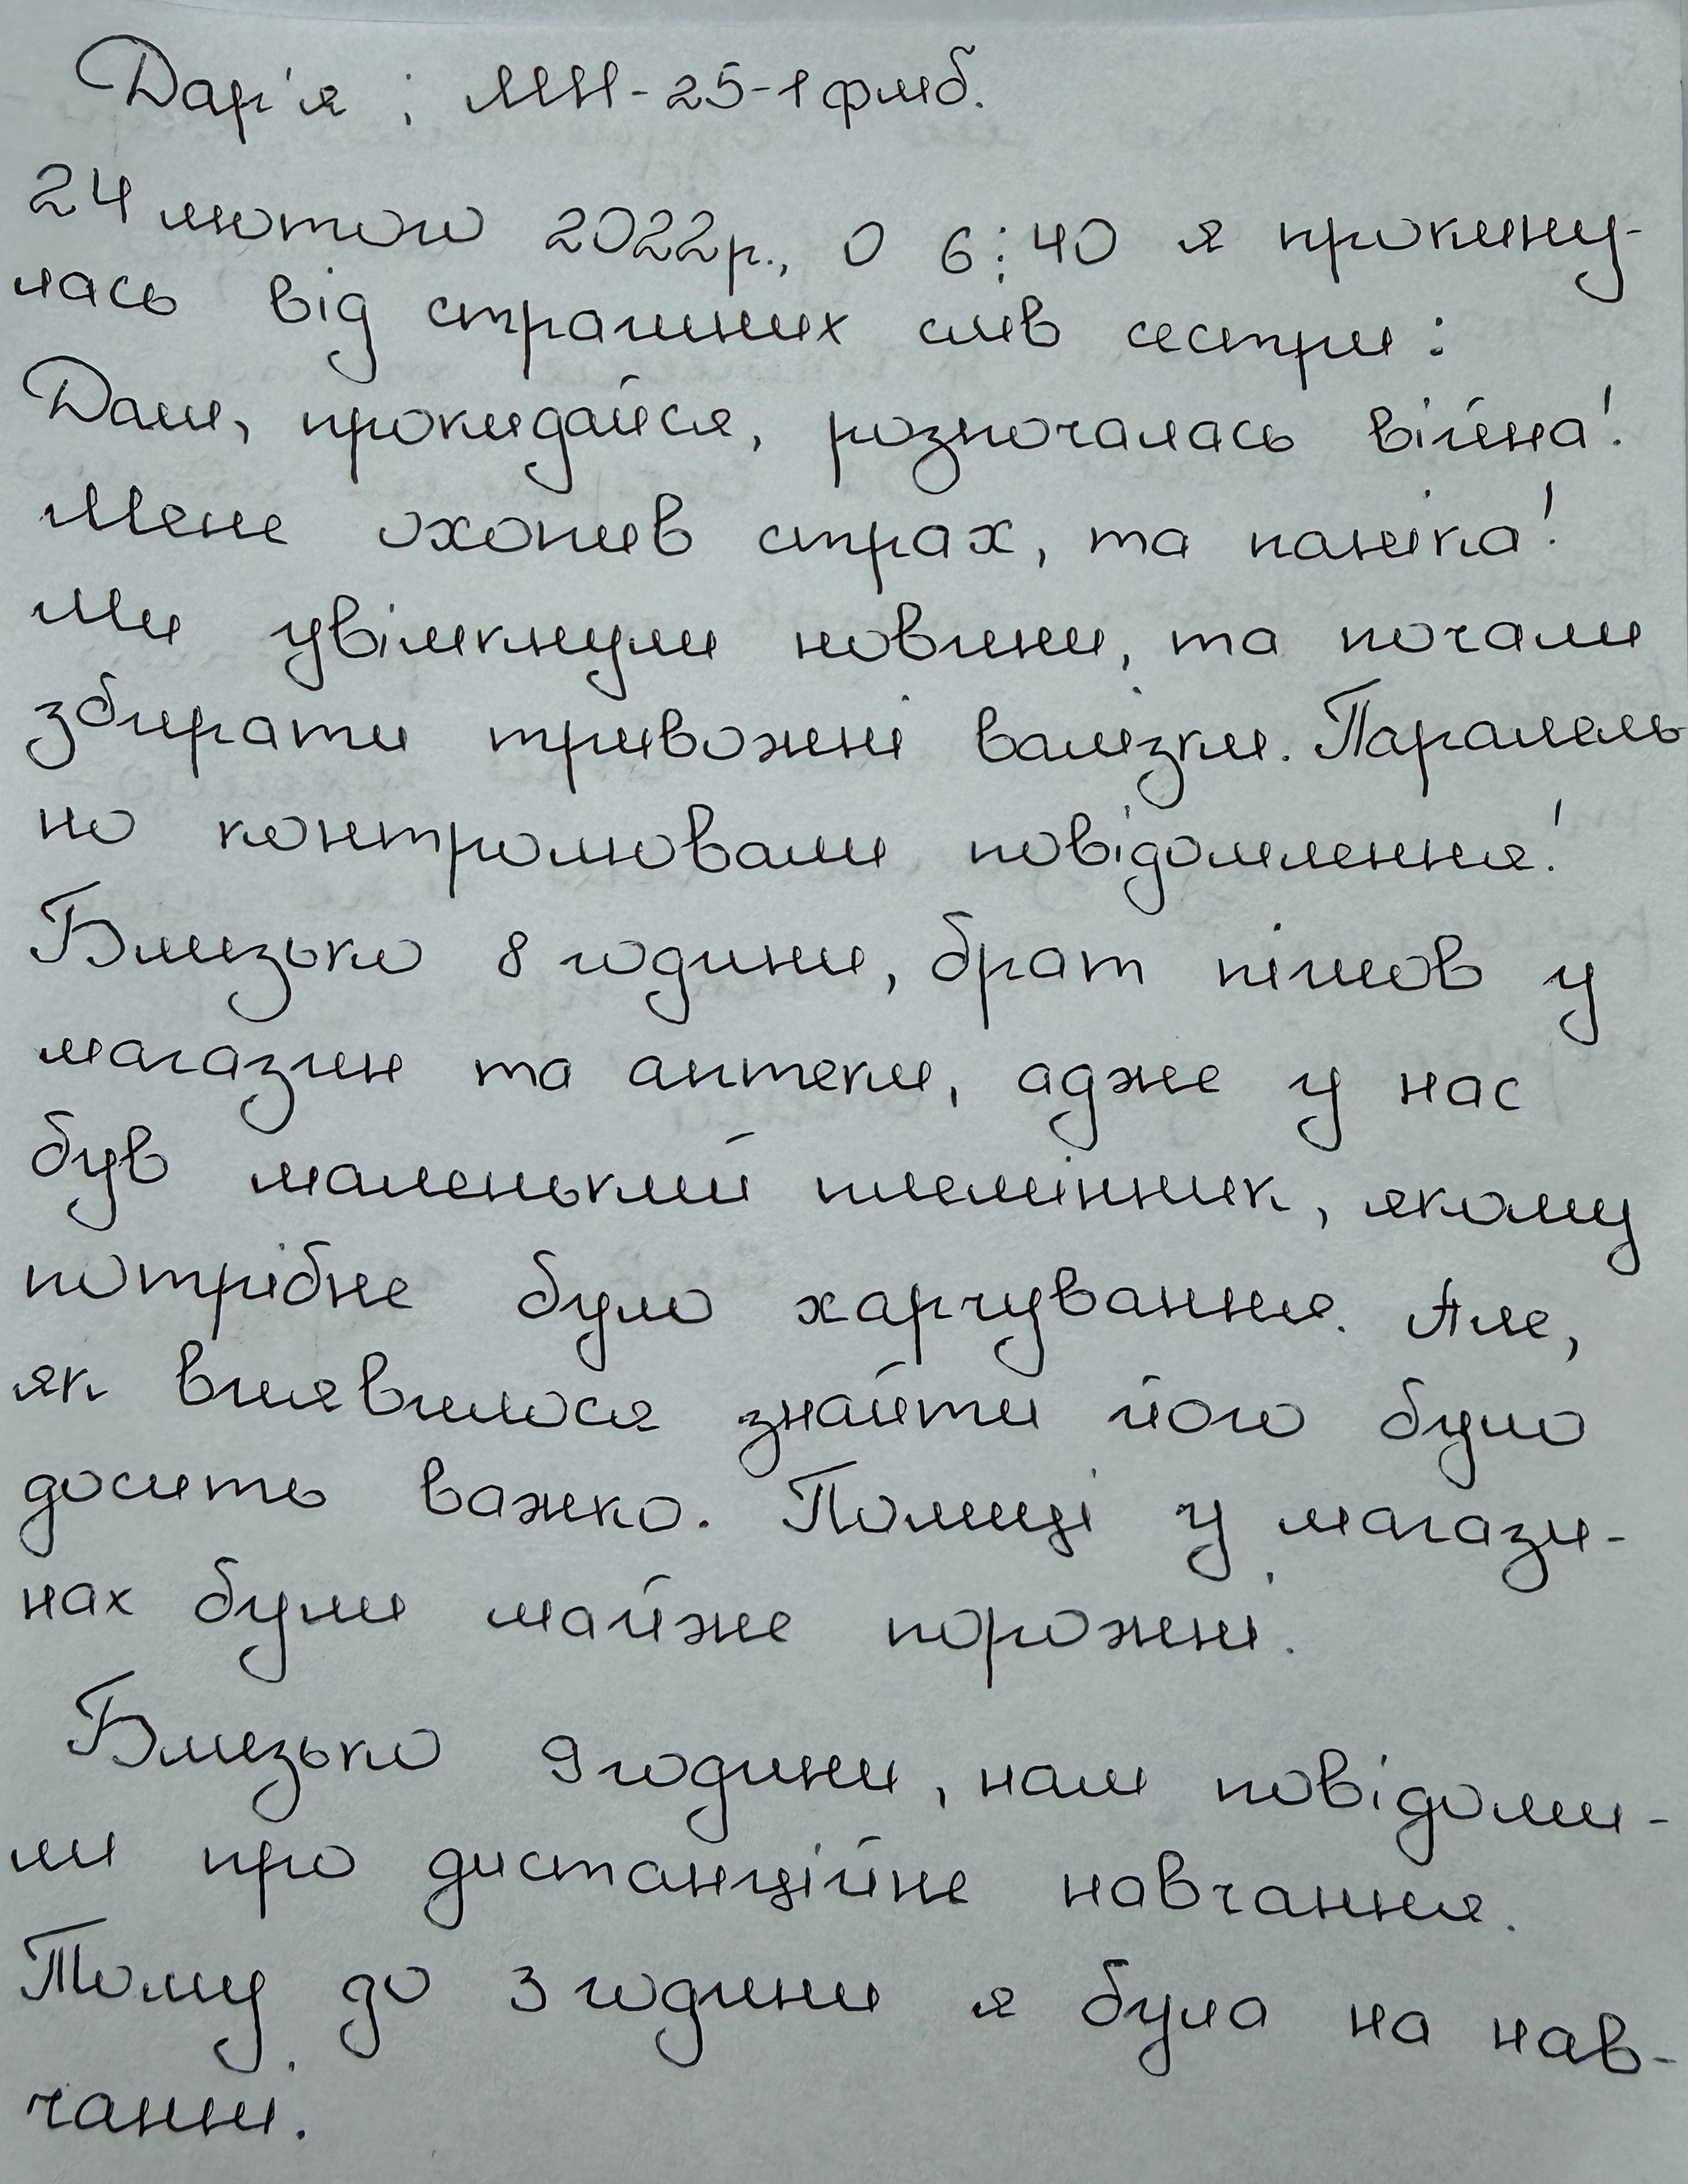 Дар'я ; МН-25-1фмб.
24 лютого 2022р., о 6:40 я прокину-
лась від страшних слів сестри:
Даш, прокидайся, розпочалась війна!
Мене охопив страх, та паніка!
Ми увімкнули новини, та почали
збирати тривожні валізки. Паралель
но контролювали повідомлення!
Близько 8 години, брат пішов у
магазин та аптеки, адже у нас
був маленький племінник, якому
потрібне було харчування. Але,
як виявилося знайти його було
досить важко. Полиці у магази-
нах були майже порожні.
Близько 9 години, нам повідоми-
ли про дистанційне навчання.
Тому до 3 години я була на нав-
чанні.